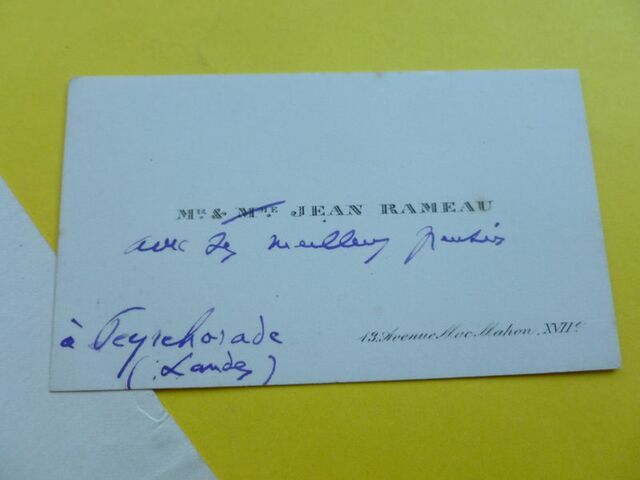 Mr. & Mme JEAN RAMEAU
avec ses meilleurs pensées
à Peyrehorade
(Landes)
13. Avenue Mac Mahon. XVIIe